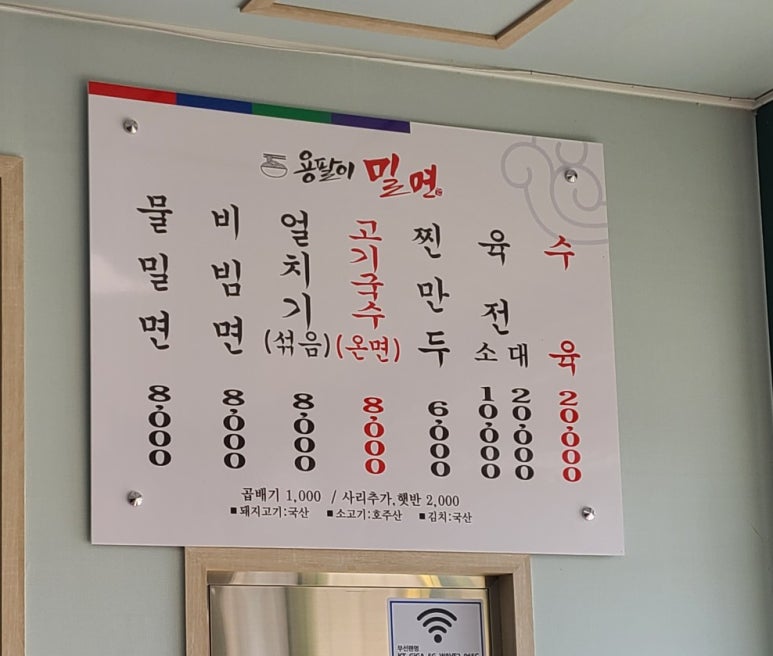 용팔이 밀면
물밀면 8,000
비빔면 8,000
얼치기 (섞음) 8,000
고기국수 (온면) 8,000
찐만두 6,000
육전 소 10,000 대 20,000
수육 20,000
곱배기 1,000 / 사리추가, 햇반 2,000
■돼지고기:국산 ■소고기:호주산 ■김치:국산
무선랜명